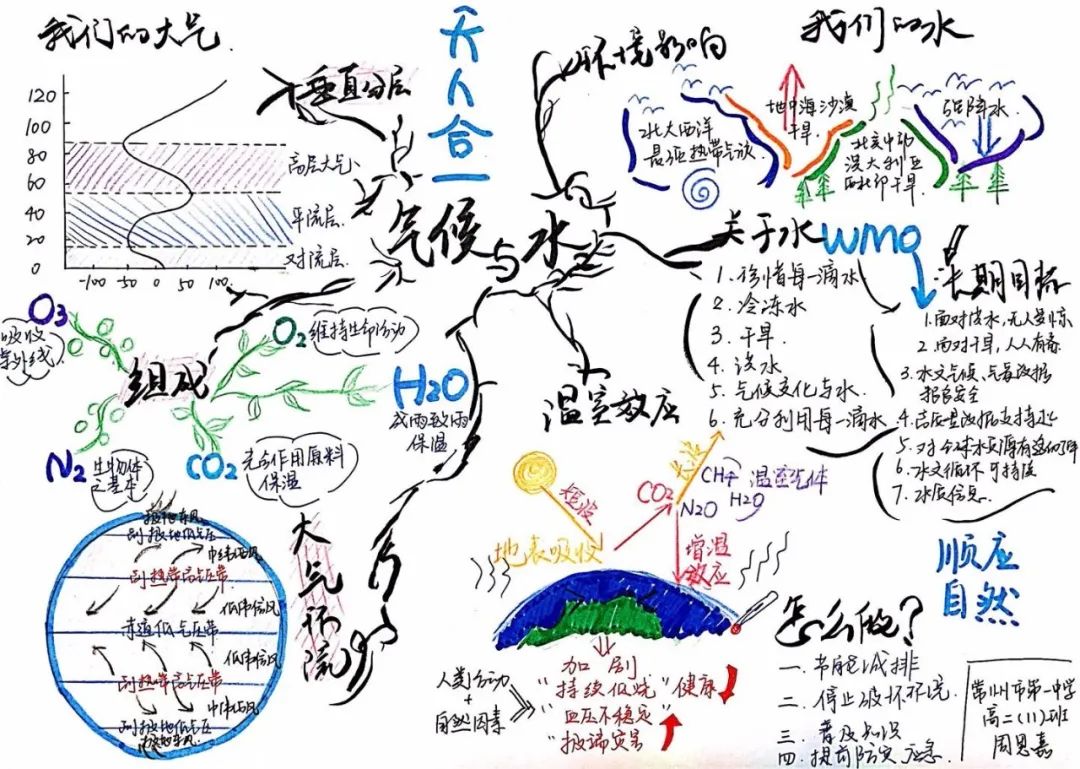 我们的大气
垂直分层
120
100
80
60
40
20
0
-100 -50 0 50 100
高层大气
平流层
对流层
天人合一
气候与水
环境影响
我们的水
北大西洋
最强热带气旋
地中海沙漠
干旱
北京中部
澳大利亚
干旱
强降水
关于水
1. 珍惜每一滴水
2. 冷冻水
3. 干旱
4. 淡水
5. 气候变化与水
6. 充分利用每一滴水
WMO
长期目标
1. 面对洪水,无人受惊
2. 面对干旱,人人有备
3. 水文气候、气象数据
4. 高质量数据支持
5. 对全球水资源有透
6. 水文循环可持续
7. 水质信息
组成
O3
吸收
紫外线
O2
维持生命活动
H2O
成雨致雨
保温
N2
生物体
之基本
CO2
光合作用原料
保温
大气环流
极地东风
副极地低气压
中纬西风
副热带高气压带
低纬信风
赤道低气压带
低纬信风
副热带高气压带
中纬西风
副极地低气压
极地东风
温室效应
短波
长波
地表吸收
CO2
CH4
N2O
H2O
温室气体
增温
效应
人类活动
+
自然因素
加剧
"持续低烧"
"血压不稳定"
"极端灾害
健康
顺应
自然
怎么做?
一. 节能减排
二. 停止破坏环境
三. 普及知识
四. 提前防灾应急
常州市第一中学
高二(11)班
周思嘉